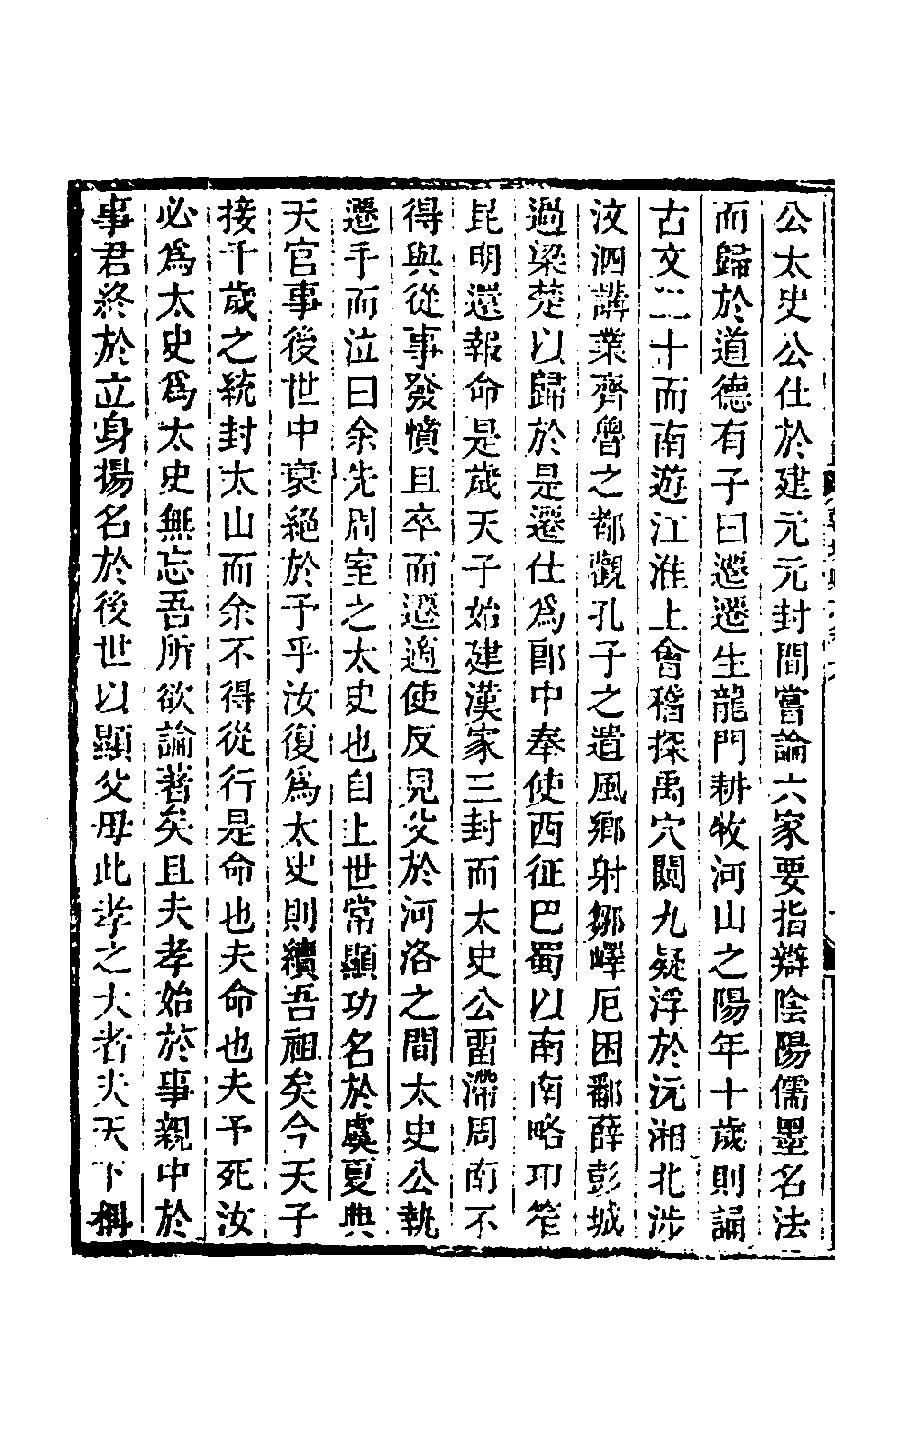 公太史公仕於建元元封間嘗論六家要指辯陰陽儒墨名法
而歸於道德有子曰遷遷生龍門耕牧河山之陽年十歲則誦
古文二十而南遊江淮上會稽探禹穴闚九疑浮於沅湘北涉
汶泗講業齊魯之都觀孔子之遺風鄉射鄒嶧厄困鄱薛彭城
過梁楚以歸於是遷仕為郎中奉使西征巴蜀以南南略邛笮
昆明還報命是歲天子始建漢家三封而太史公畱滯周南不
得與從事發憤且卒而遷適使反見父於河洛之間太史公執
遷手而泣曰余先周室之太史也自上世常顯功名於虞夏典
天官事後世中衰絕於予乎汝復為太史則續吾祖矣今天子
接千歲之統封太山而余不得從行是命也夫命也夫予死汝
必為太史為太史無忘吾所欲論著矣且夫孝始於事親中於
事君終於立身揚名於後世以顯父母此孝之大者夫天下稱